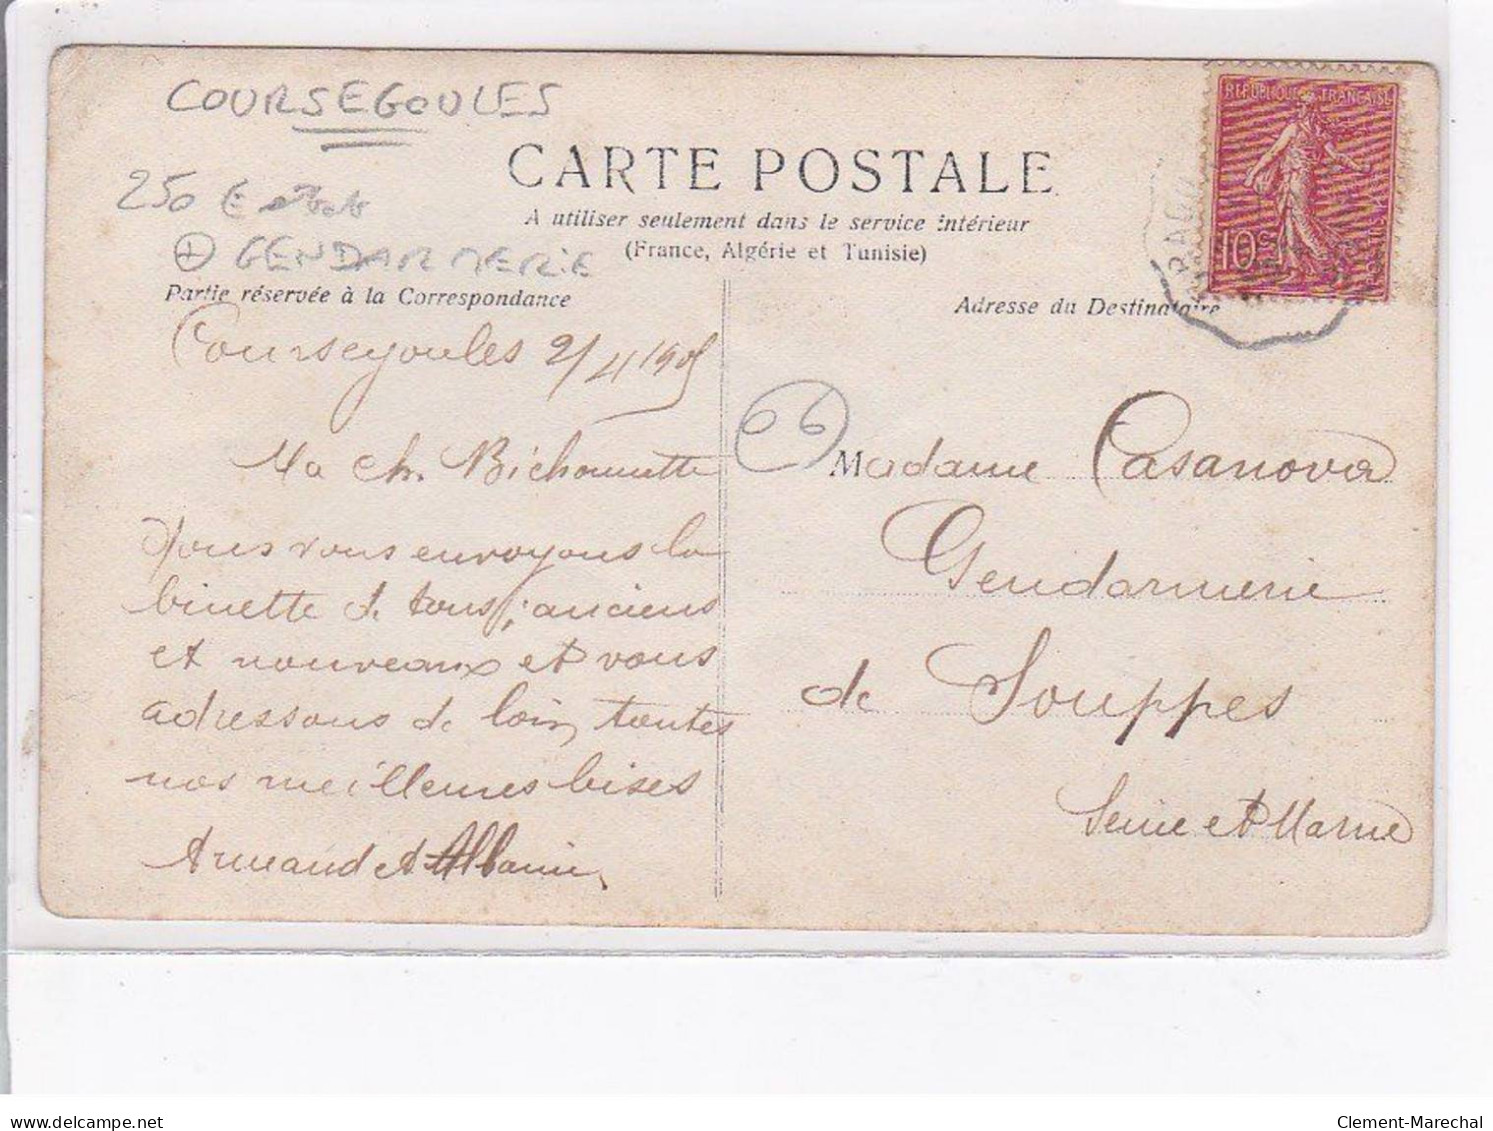 COURSEGOULES
250 E
GENDARMERIE
CARTE POSTALE
A utiliser seulement dans le service intérieur
(France, Algérie et Tunisie)
Partie réservée à la Correspondance
Adresse du Destinataire
REPUBLIQUE FRANÇAISE
10c
Coursegoules 2/4 1905
06
Ma ch. Bichounette
Nous vous envoyons la
binette de tous, anciens
et nouveaux et vous
adressons de loin toutes
nos meilleures bises
Armand et Albanie
Madame Casanova
Gendarmerie
de Souppes
Seine et Marne
delcampe.net
Clement-Marechal